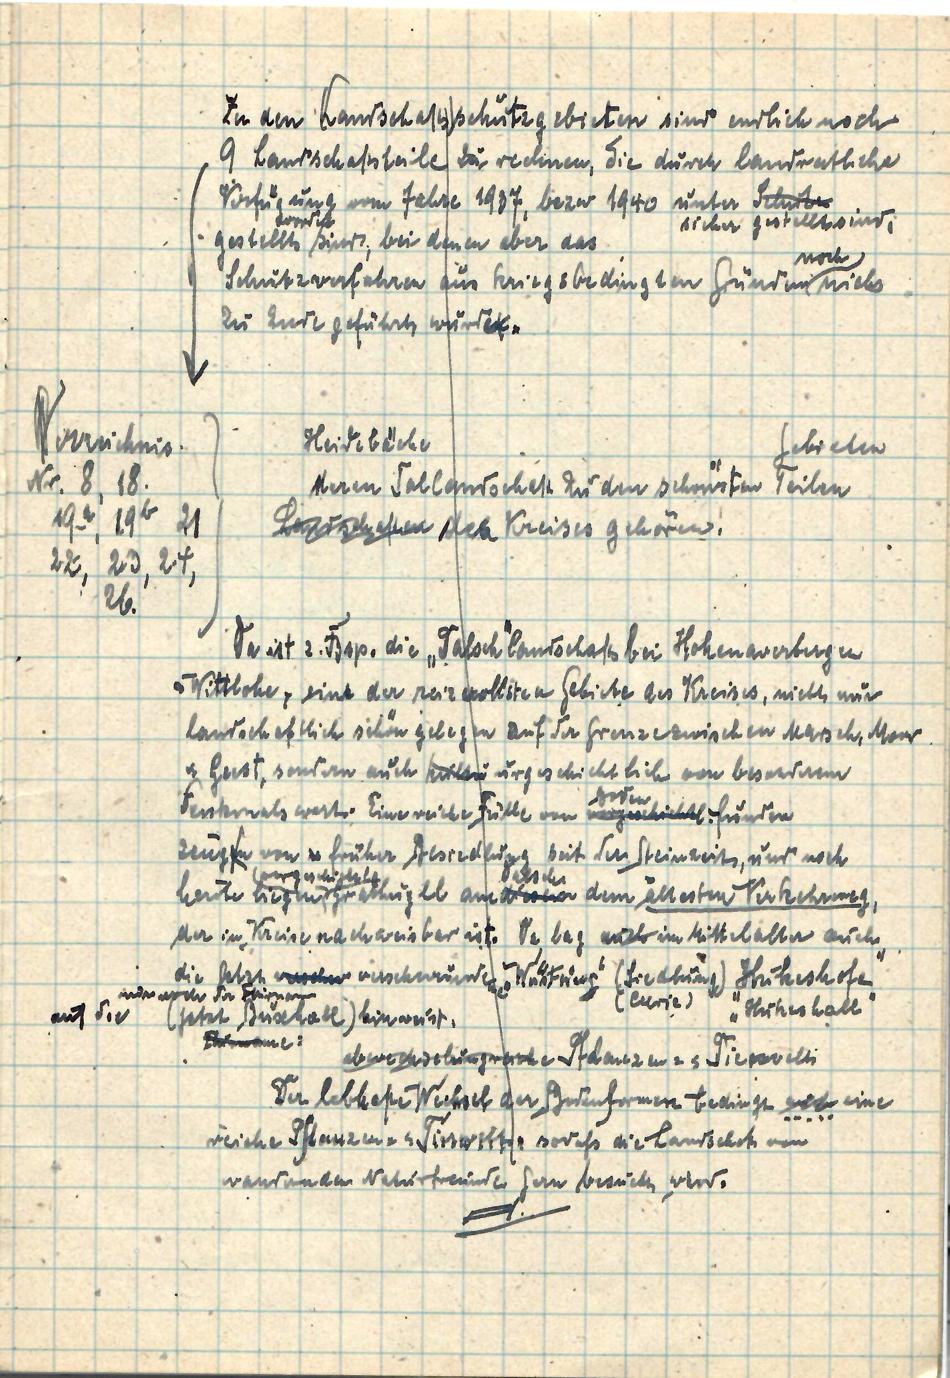 Zu den Landschaftsschutzgebieten sind endlich noch
9 Landschaftsteile zu rechnen, die durch landrätliche
Verfügung vom Jahre 1937, bezw 1940 unter Schutz
sicher gestellt sind,
gestellt sind, bei denen aber das
noch
Schutzverfahren aus kriegsbedingten Gründen nicht
zu Ende geführt wurde.
Verzeichnis.
Nr. 8, 18.
19a, 19b 21
22, 23, 24,
26.
Heidebäche Gebieten
deren Tallandschaft zu den schönsten Teilen
Landschaften des Kreises gehören.
Da ist z. Bsp. die „Dalsch“landschaft bei Hohenaverbergen
Wittlohe, eine der reizvollsten Gebiete des Kreises, nicht nur
landschaftlich schön gelegen auf der Grenze zwischen Marsch, Moor
u. Geest, sondern auch urgeschichtlich von besonderem
Denkmalswert. Eine reiche Fülle von funden
Boden
zeugen von früher Besiedlung seit der Steinzeit, und noch
vorgeschichtl.
heute liegen Grabhügel an dem ältesten Verkehrsweg,
der im Kreise nachweisbar ist. Da lag auch im Mittelalter auch
die jetzt verschwundene „Wüstung“ (Siedlung) „Hukeshofe“
(Curie) „Hukeshall“
nur noch der Flurname
auf die (jetzt Buxhall) hinweist.
Flurname:
abwechslungsreiche Pflanzen- u. Tierwelt
Der lebhafte Wechsel der Bodenformen bedingt eine
reiche Pflanzen- u. Tierwelt, sodaß die Landschaft von
wandernden Naturfreunden gern besucht wird.